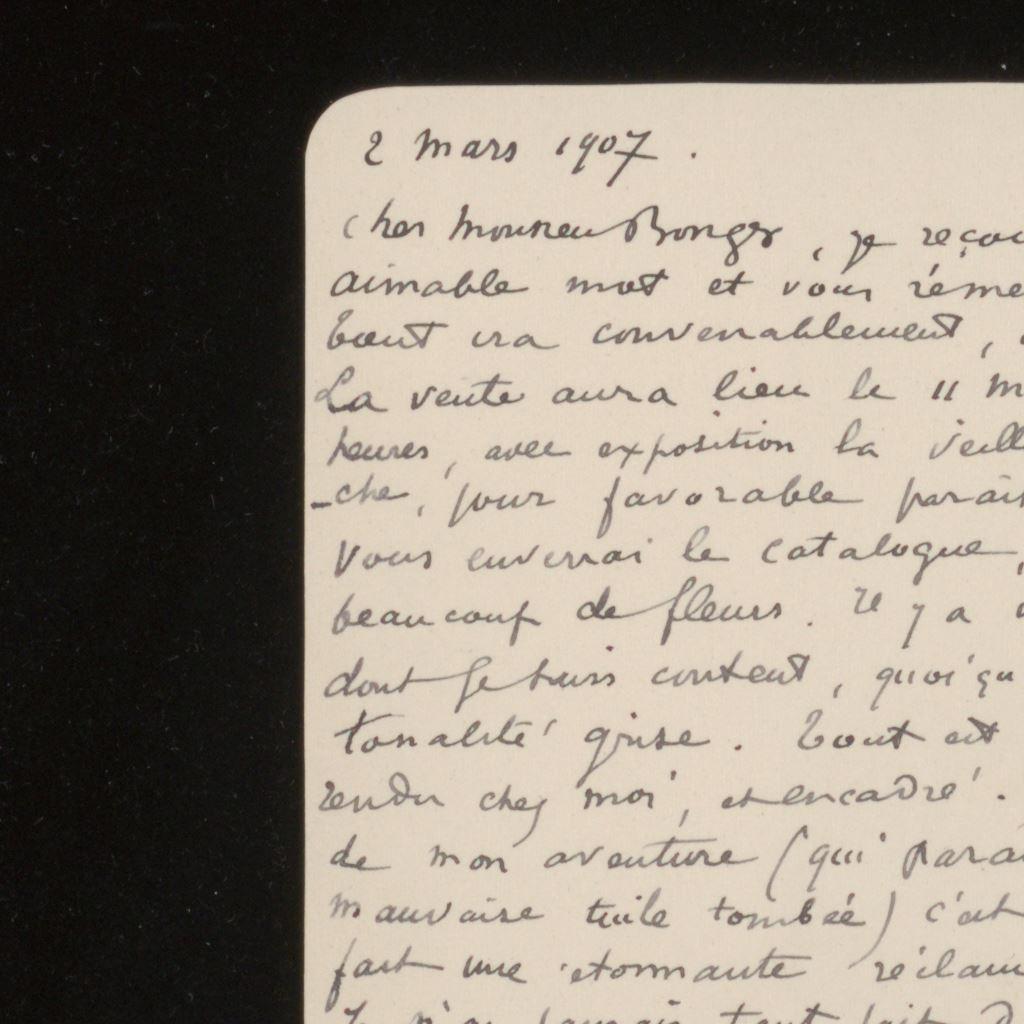 2 mars 1907.
Cher Monsieur Bonger, je reçoi
aimable mot et vous réme
tout ira convenablement,
La vente aura lieu le 11 m
heures, avec exposition la veill
-che, jour favorable parais
vous enverrai le catalogue,
beaucoup de fleurs. Il y a
dont je suis content, quoi'qu
tonalité grise. Tout est
rendu chez moi, et encadré.
de mon aventure (qui parai
mauvaise tuile tombée) c'est
fait une étonnante réclam
tout fait